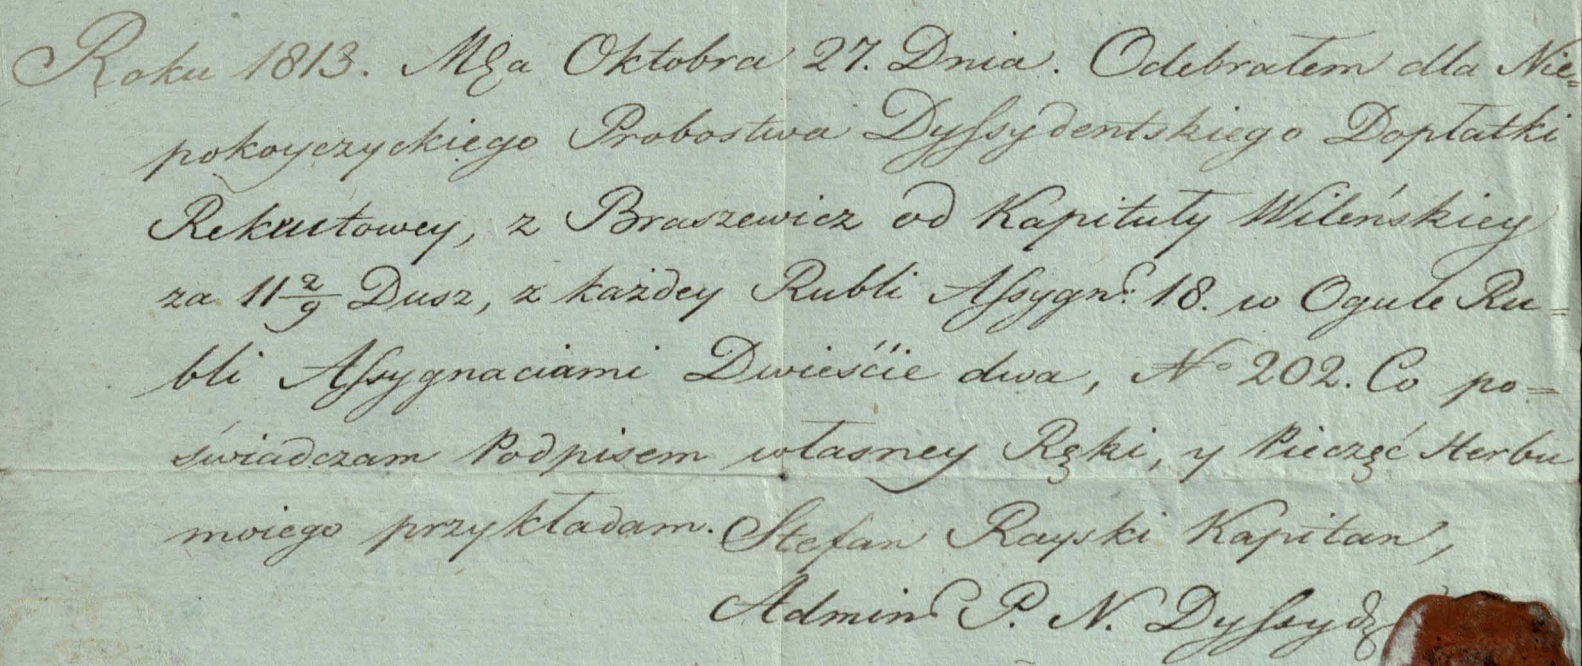 Roku 1813. Mca Oktobra 27. Dnia. Odebrałem dla Nie=
pokoyczyckiego Probostwa Dyssydentskiego Dopłatki
Rekrutowey, z Braszewicz od Kapituły Wileńskiey
za 11 2/9 Dusz, z każdey Rubli Assygn: 18. w Ogule Ru=
bli Assygnaciami Dwieście dwa, No 202. Co po=
świadczam Podpisem własney Ręki, y Pieczęć Herbu
moiego przykładam. Stefan Rayski Kapitan,
Admin P. N. Dyssyd